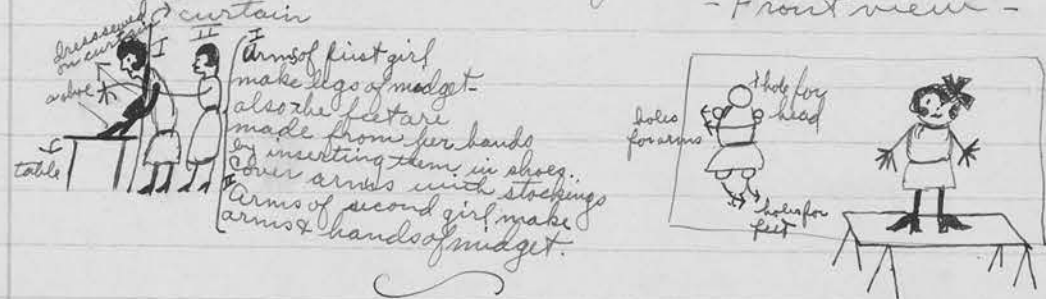 curtain
- Front view -
dress sewed
on curtain
I
II
shoe
table
I
Arms of first girl
make legs of midget
also the feet are
made from her hands
by inserting them in shoes.
Cover arms with stockings
II
Arms of second girl make
arms & hands of midget.
holes
for arms
hole for
head
holes for
feet